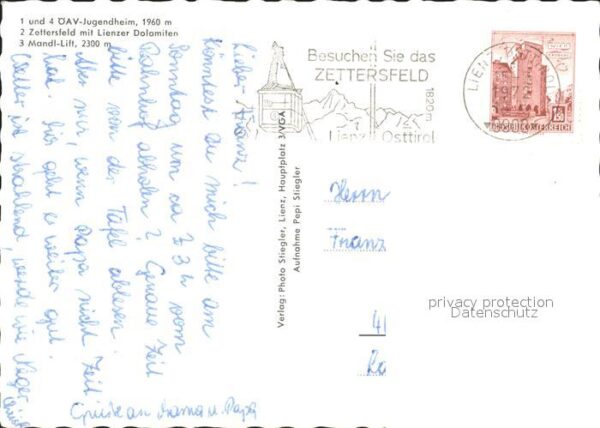 1 und 4 ÖAV-Jugendheim, 1960 m
2 Zettersfeld mit Lienzer Dolomiten
3 Mandl-Lift, 2300 m
Besuchen Sie das
ZETTERSFELD
1820m
Lienz Osttirol
LIENZ
REPUBLIK ÖSTERREICH
Verlag: Photo Stiegler, Lienz, Hauptplatz 3/VGA
Aufnahme Pepi Stiegler
Lieber Franz!
Könntest Du mich bitte am
Sonntag um ca
Bahnhof abholen? Genaue Zeit
bitte von der Tafel ablesen.
Aber nur, wenn Papa nicht Zeit
hat. Hier geht es weiter gut.
Wetter ist strahlend, werde wie Neger
Grüße an Mama u. Papa
Herrn
Franz
41
privacy protection
Datenschutz